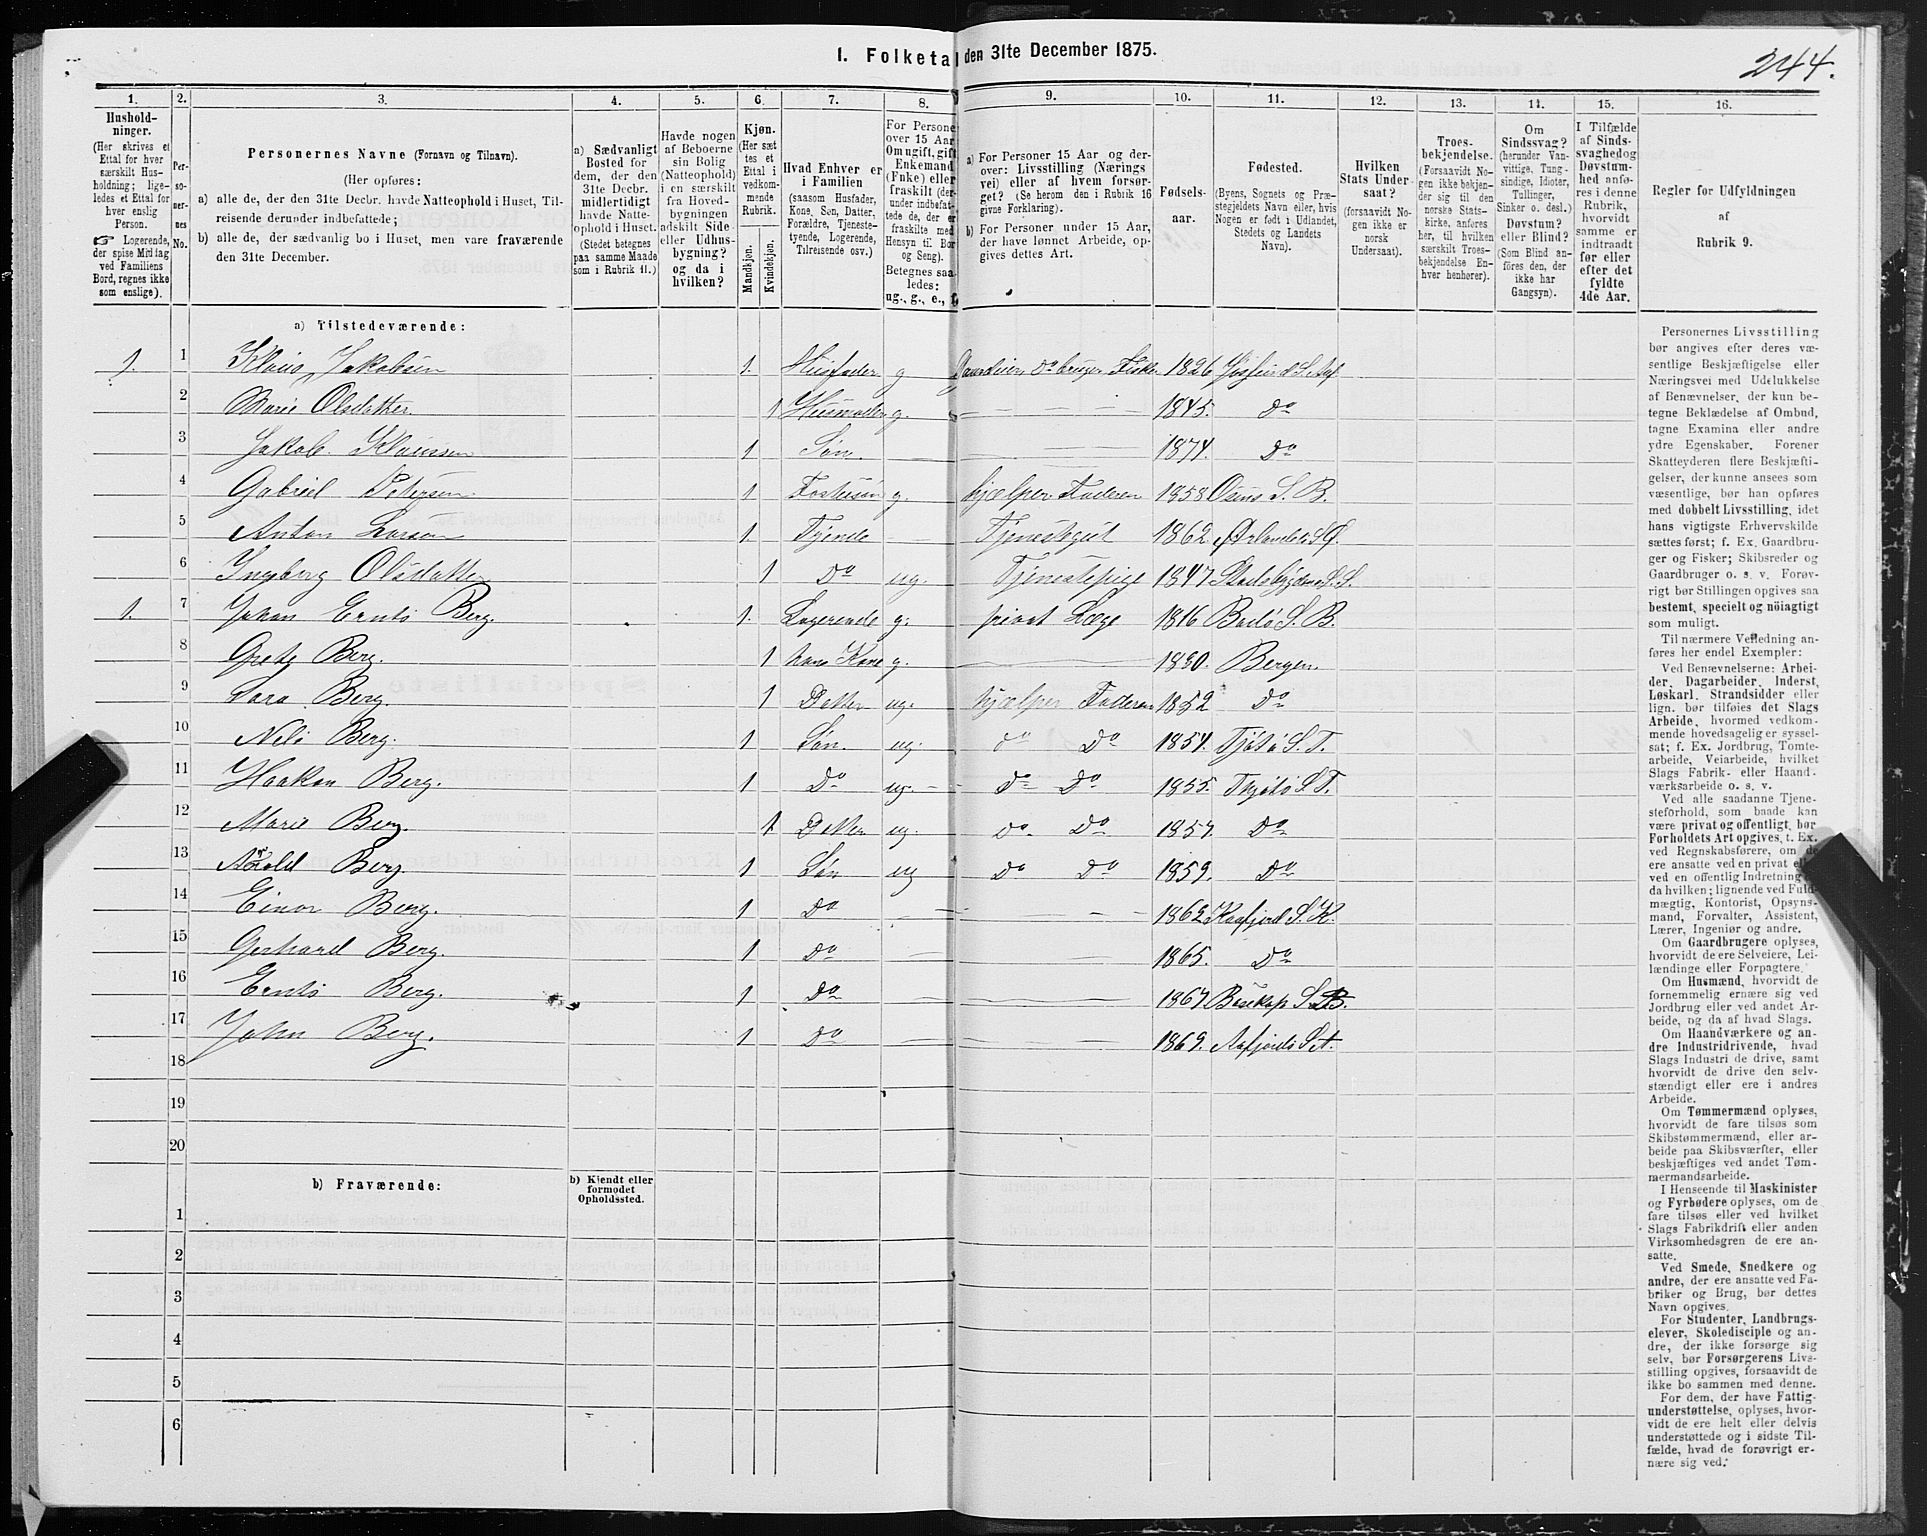 1. Folketal den 31te December 1875.
244.
1.
2.
3.
4.
5.
6.
7.
8.
9.
10.
11.
12.
13.
14.
15.
16.
Hushold-
ninger.
(Her skrives et
Ettal for hver
særskilt Hus-
holdning; lige-
ledes et Ettal for
hver enslig
Person.
☞ Logerende,
der spise Middag
ved Familiens
Bord, regnes ikke
som enslige).
Per-
so-
ner-
nes
No.
Personernes Navne (Fornavn og Tilnavn).
(Her opføres:
a) alle de, der den 31te Decbr. havde Natteophold i Huset, Til-
reisende derunder indbefattede;
b) alle de, der sædvanlig bo i Huset, men vare fraværende
den 31te December.
a) Sædvanligt
Bosted for
dem, der den
31te Decbr.
midlertidigt
havde Natte-
ophold i Huset.
(Stedet betegnes
paa samme Maade
som i Rubrik 11.)
Havde nogen
af Beboerne
sin Bolig
(Natteophold)
i en særskilt
fra Hoved-
bygningen
adskilt Side-
eller Udhus-
bygning?
og da i
hvilken?
Kjøn.
(Her sæt
tes et
Ettal i
vedkom-
mende
Rubrik.
Mandkjøn.
Kvindekjøn.
Hvad Enhver er
i Familien
(saasom Husfader,
Kone, Søn, Datter,
Forældre, Tjeneste-
tyende, Logerende,
Tilreisende osv.)
For Persone
over 15 Aar
Om ugift, gift,
Enkemand
(Fnke) eller
fraskilt (der-
under indbefat-
tede de, der er
fraskilte med
Hensyn til Bor
og Seng).
Betegnes saa
ledes:
ug., g., e., f.
a) For Personer 15 Aar og der-
over: Livsstilling (Nærings
vei) eller af hvem forsør-
get? (Se herom den i Rubrik 16
givne Forklaring).
b) For Personer under 15 Aar,
der have lønnet Arbeide, op-
gives dettes Art.
Fødsels-
aar.
Fødested.
(Byens, Sognets og Præ-
stegjeldets Navn eller, hvis
Nogen er født i Udlandet,
Stedets og Landets
Navn).
Hvilken
Stats Under
saat?
(forsaavidt No-
gen ikke er
norsk
Undersaat).
Troes-
bekjendelse.
(Forsaavidt No-
gen ikke bekjen-
der sig til den
norske Stats-
kirke, anføres
her, til hvilken
særskilt Troes-
bekjendelse En-
hver henhører).
Om
Sindssvag?
(herunder Van-
vittige, Tung-
sindige, Idioter,
Tullinger,
Sinker o. desl.)
Døvstum?
eller Blind?
(Som Blind an-
føres den, der
ikke har
Gangsyn).
I Tilfælde
af Sinds-
svaghed og
Døvstum-
hed anfø-
res i denne
Rubrik,
hvorvidt
samme er
indtraadt
før eller
efter det
fyldte
4de Aar.
Regler for Udfyldningen
af
Rubrik 9.
a) Tilstedeværende:
1. 1 Klaus Jakobsen 1. Husfader g Gaardeier og bruger Fisker 1826
2 Marie Olsdatter 1 Husmoder g. 1845. Do
3 Jakob Klaussen 1 Søn. 1874. Do
4 Gabriel Petersen 1 Fostersøn g. hjælper Faderen 1858 S. B.
5 Anton Larsen 1. Tjende Tjenestegut 1862 Ørlandets S. Ø.
6 Ingeborg Olsdatter 1 Do ug. Tjenestepige 1847 Stadsbygdens S. S.
1. 7 Johan Ernts Berg. 1. Logerende g. privat Læge 1816 Bodø S. B.
8 Grete Berg. 1 hans Kone g. 1830. Bergen.
9 Sara Berg. 1 Datter ug. hjælper Faderen 1852 Do
10 Nels Berg. 1 Søn. ug. do Do 1854. Tjøtø S. T.
11 Haakon Berg. 1 Do ug. Do Do 1855. Thjøtø S. T.
12 Marie Berg. 1 Datter ug. Do Do 1857. Do
13 Arold Berg. 1 Søn ug Do Do 1859. Do
14 Einar Berg. 1 Do 1862 Kaafjord S. K.
15 Gerhard Berg. 1 Do 1865. Do
16 Ernts Berg. 1 Do 1867 Bosekop S. B.
17 John Berg. 1 Do 1869. Aafjords S. A.
18
19
20
b) Fraværende:
b) Kjendt eller
formodet
Opholdssted.
1
2
3
4
5
6
Personernes Livsstilling
bør angives efter deres væ-
sentlige Beskjæftigelse eller
Næringsvei med Udelukkelse
af Benævnelser, der kun be-
tegne Beklædelse af Ombud,
tagne Examina eller andre
ydre Egenskaber. Forener
Skatteyderen flere Beskjæfti-
gelser, der kunne ansees som
væsentlige, bør han opføres
med dobbelt Livsstilling, idet
hans vigtigste Erhvervskilde
sættes først; f. Ex. Gaardbru-
ger og Fisker; Skibsreder og
Gaardbruger o. s. v. Forøv-
rigt bør Stillingen opgives saa
bestemt, specielt og nöiagtigt
som muligt.
Til nærmere Veiledning an-
føres her endel Exempler:
Ved Benævnelserne: Arbei-
der, Dagarbeider, Inderst,
Løskarl, Strandsidder eller
lign. bør tilføies det Slags
Arbeide, hvormed vedkom-
mende hovedsagelig er syssel-
sat; f. Ex. Jordbrug, Tomte-
arbeide, Veiarbeide, hvilket
Slags Fabrik- eller Haand-
værksarbeide o. s. v.
Ved alle saadanne Tjene-
steforhold, som baade kan
være privat og offentligt, bør
Forholdets Art opgives, t. Ex.
ved Regnskabsførere, om de
ere ansatte ved en privat eller
ved en offentlig Indretning og
da hvilken; lignende ved Fuld-
mægtig, Kontorist, Opsyns-
mand, Forvalter, Assistent,
Lærer, Ingeniør og andre.
Om Gaardbrugere oplyses,
hvorvidt de ere Selveiere, Lei-
lændinge eller Forpagtere.
Om Husmænd, hvorvidt de
fornemmelig ernære sig ved
Jordbrug eller ved andet Ar-
beide, og da af hvad Slags.
Om Haandværkere og an-
dre Industridrivende, hvad
Slags Industri de drive, samt
hvorvidt de drive den selv-
stændigt eller ere i andres
Arbeide.
Om Tømmermænd oplyses,
hvorvidt de fare tilsøs som
Skibstømmermænd, eller ar-
beide paa Skibsværfter, eller
beskjæftiges ved andet Tøm-
mermandsarbeide.
I Henseende til Maskinister
og Fyrbødere oplyses, om de
fare tilsøs eller ved hvilket
Slags Fabrikdrift eller anden
Virksomhedsgren de ere an-
satte.
Ved Smede, Snedkere og
andre, der ere ansatte ved Fa-
briker og Brug, bør dettes
Navn opgives.
For Studenter, Landbrugs-
elever, Skoledisciple og an-
dre, der ikke forsørge sig
selv, bør Forsørgerens Livs-
stilling opgives, forsaavidt de
ikke bo sammen med denne.
For dem, der have Fattig-
understøttelse, oplyses, hvor-
vidt de ere helt eller delvis
understøttede og i sidste Til-
fælde, hvad de forøvrigt er-
nære sig ved.